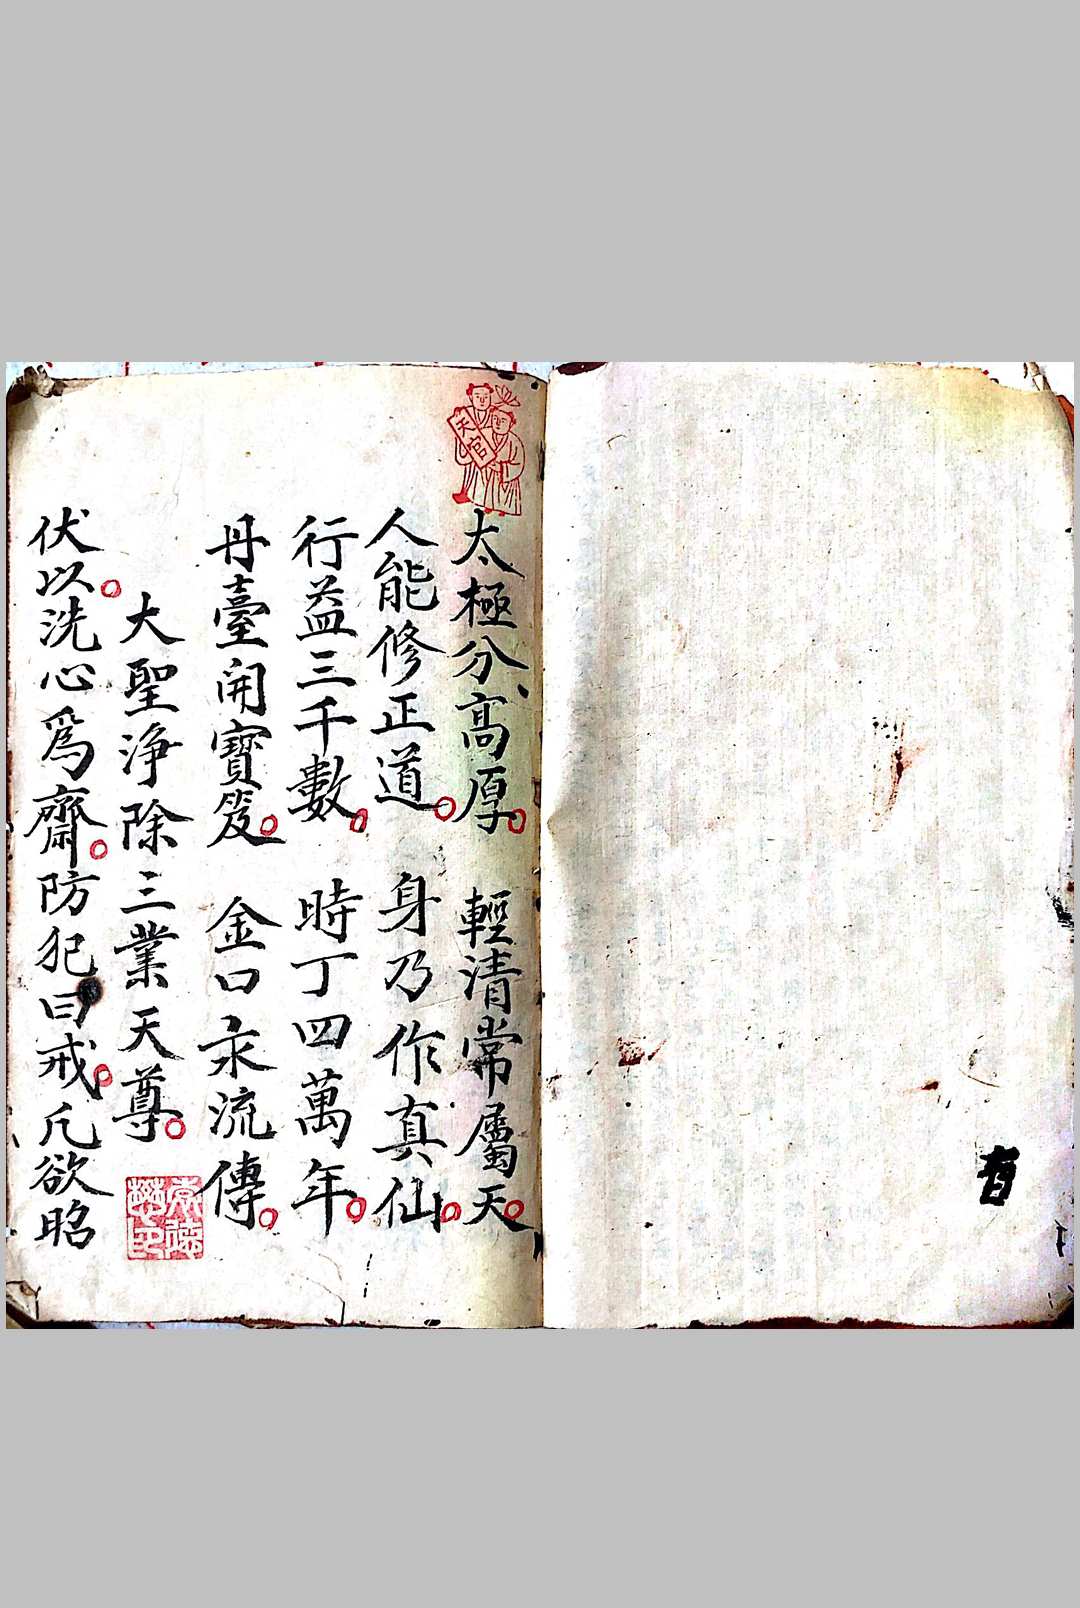 有
天官
太極分高厚。輕清常屬天。
人能修正道。身乃作真仙。
行益三千數。時丁四萬年。
丹臺開寶笈。金口永流傳。
大聖淨除三業天尊。
伏以。洗心爲齋。防犯曰戒。凡欲昭